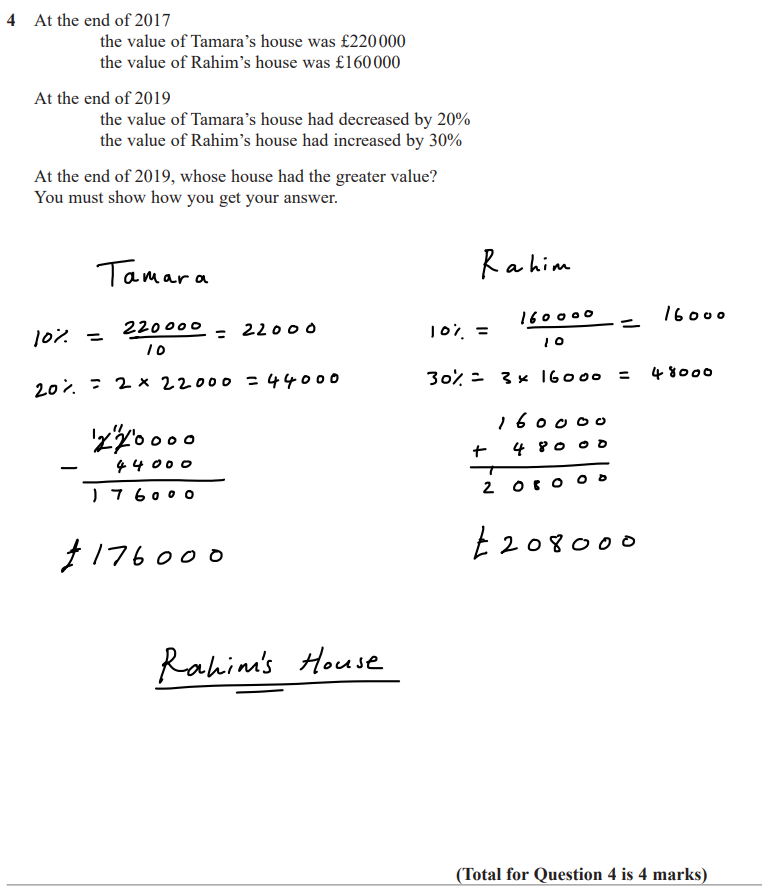 4 At the end of 2017
the value of Tamara's house was £220 000
the value of Rahim's house was £160 000
At the end of 2019
the value of Tamara's house had decreased by 20%
the value of Rahim's house had increased by 30%
At the end of 2019, whose house had the greater value?
You must show how you get your answer.
Tamara
10% = 220000/10 = 22000
20% = 2 × 22000 = 44000
220000
- 44000
176000
£176000
Rahim
10% = 160000/10 = 16000
30% = 3 × 16000 = 48000
160000
+ 48000
208000
£208000
Rahim's House
(Total for Question 4 is 4 marks)